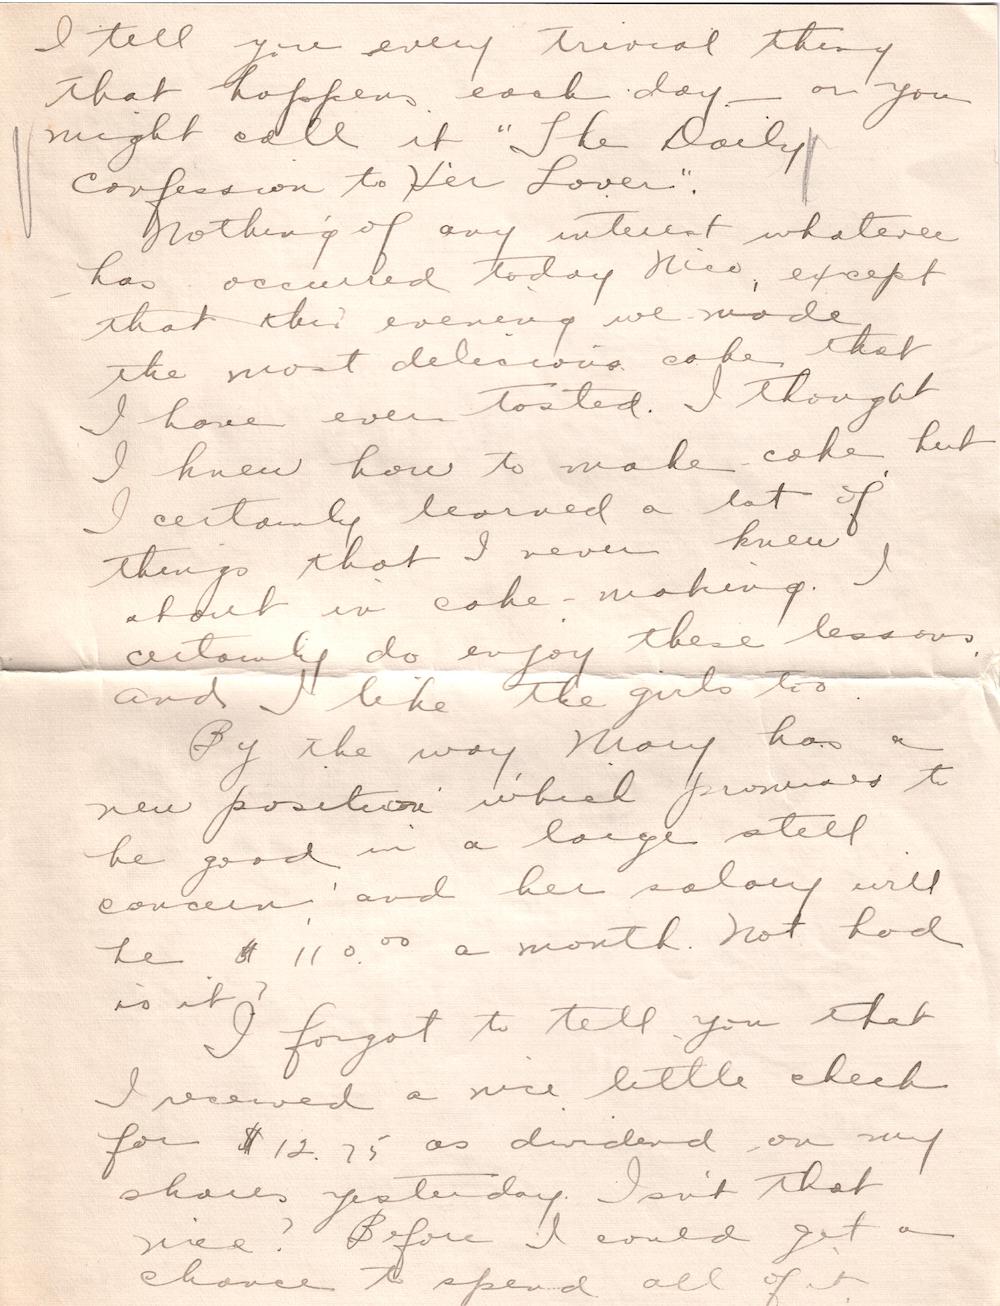 I tell you every trivial thing
that happens each day — or you
might call it "The Daily
Confession to Her Lover".
Nothing of any interest whatever
has occurred today Nico, except
that this evening we made
the most delicious cake that
I have ever tasted. I thought
I knew how to make cake, but
I certainly learned a lot of
things that I never knew
about in cake-making. I
certainly do enjoy these lessons,
and I like the girls too.
By the way, Mary has a
new position which promises to
be good in a large steel
concern, and her salary will
be $110.00 a month. Not bad
is it?
I forgot to tell you that
I received a nice little check
for $12.75 as dividend on my
shares yesterday. Isn't that
nice? Before I could get a
chance to spend all of it